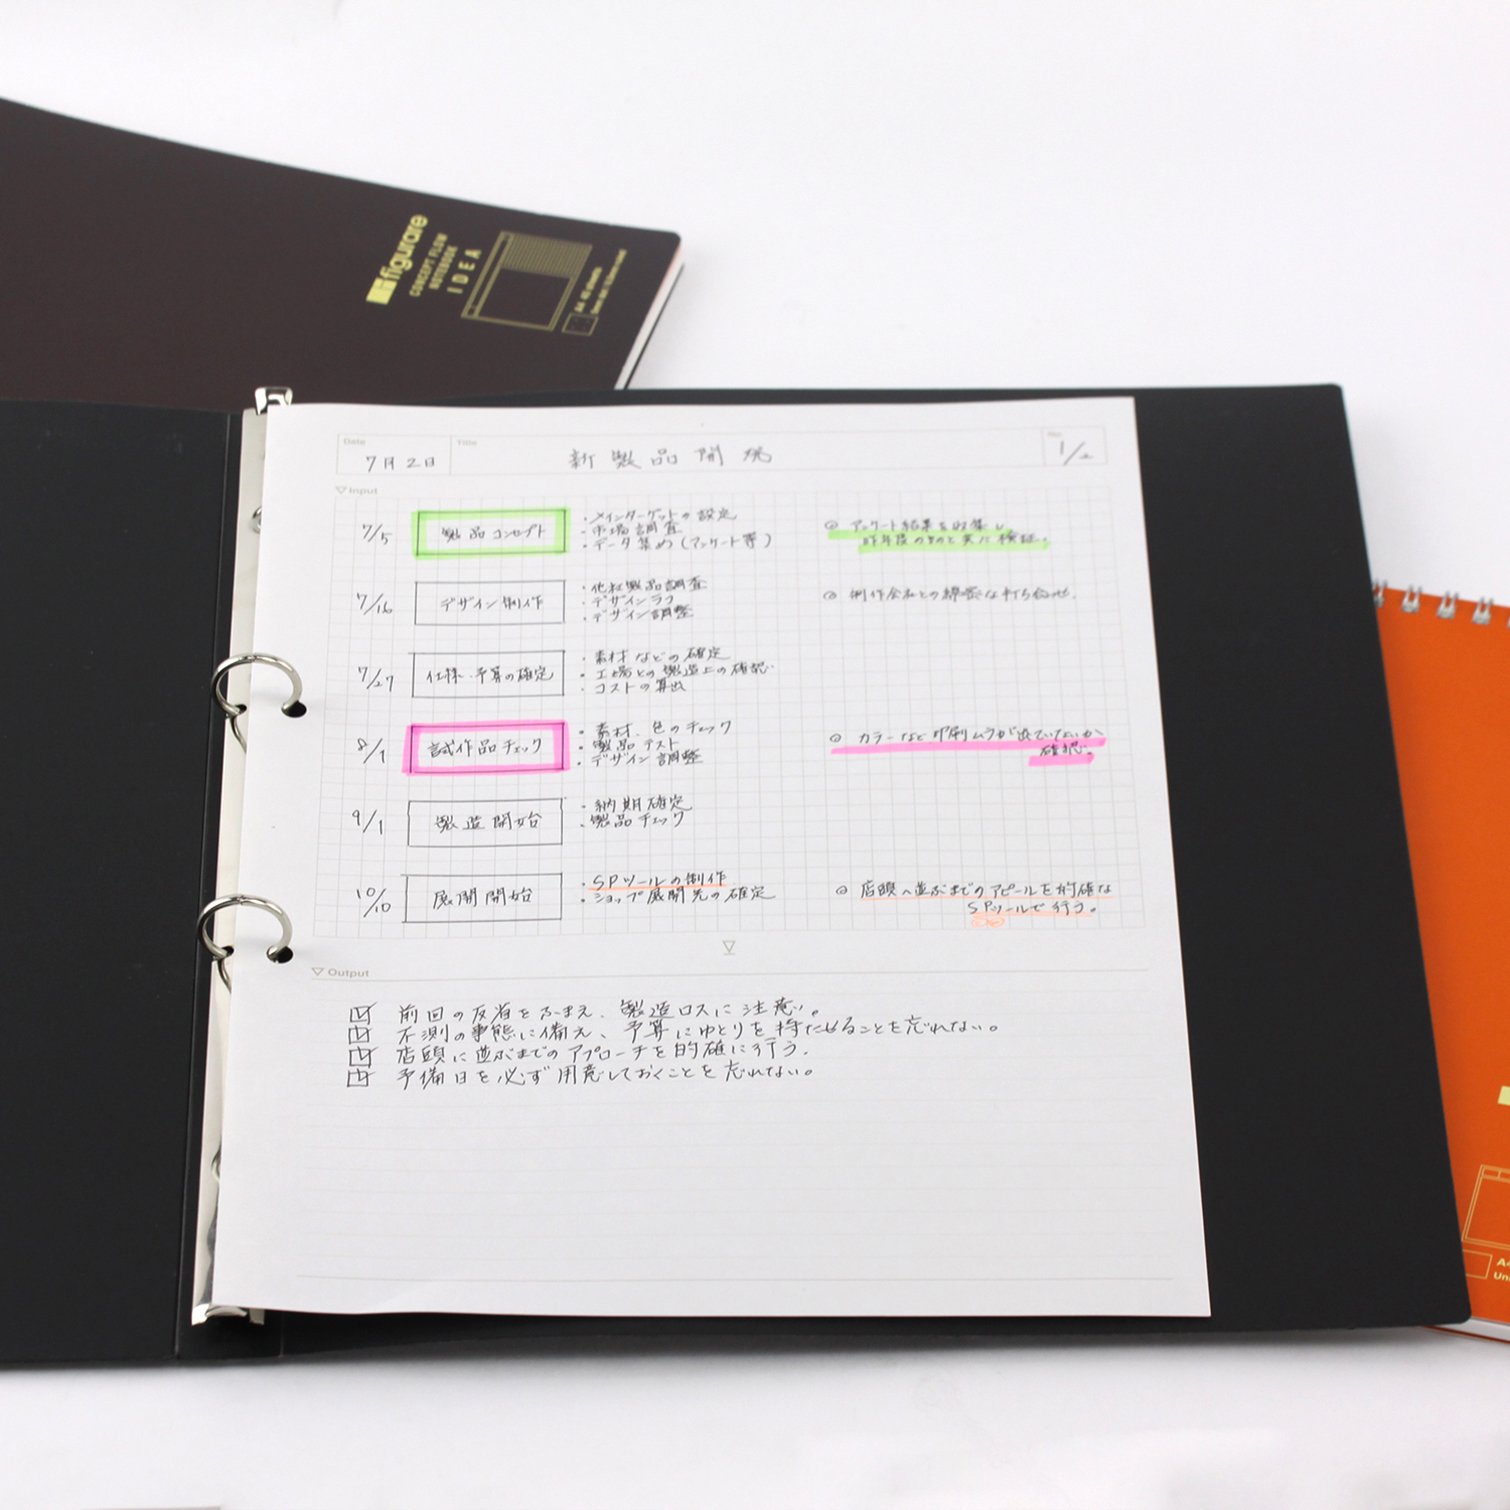 figurare
CONCEPT FLOW
NOTEBOOK
IDEA
A4 40 sheets
Date
7月2日
Title
新製品開発
No.
1/2
Input
7/5
製品コンセプト
・メインターゲットの設定
・市場調査
・データ集め(アンケート等)
◎ アンケート結果を収集し
昨年度のものと共に検証。
7/16
デザイン制作
・他社製品調査
・デザインラフ
・デザイン調整
◎ 制作会社との綿密な打ち合わせ.
7/27
仕様・予算の確定
・素材などの確定
・工場との製造上の確認
・コストの算出
8/1
試作品チェック
・素材、色のチェック
・製品テスト
・デザイン調整
◎ カラーなど印刷ムラが出ていないか
確認。
9/1
製造開始
・納期確定
・製品チェック
10/10
展開開始
・SPツールの制作
・ショップ展開先の確定
◎ 店頭へ並ぶまでのアピールを的確な
SPツールで行う。
Output
前回の反省をふまえ、製造ロスに注意。
不測の事態に備え、予算にゆとりを持たせることを忘れない。
店頭に並ぶまでのアプローチを的確に行う.
予備日を必ず用意しておくことを忘れない。